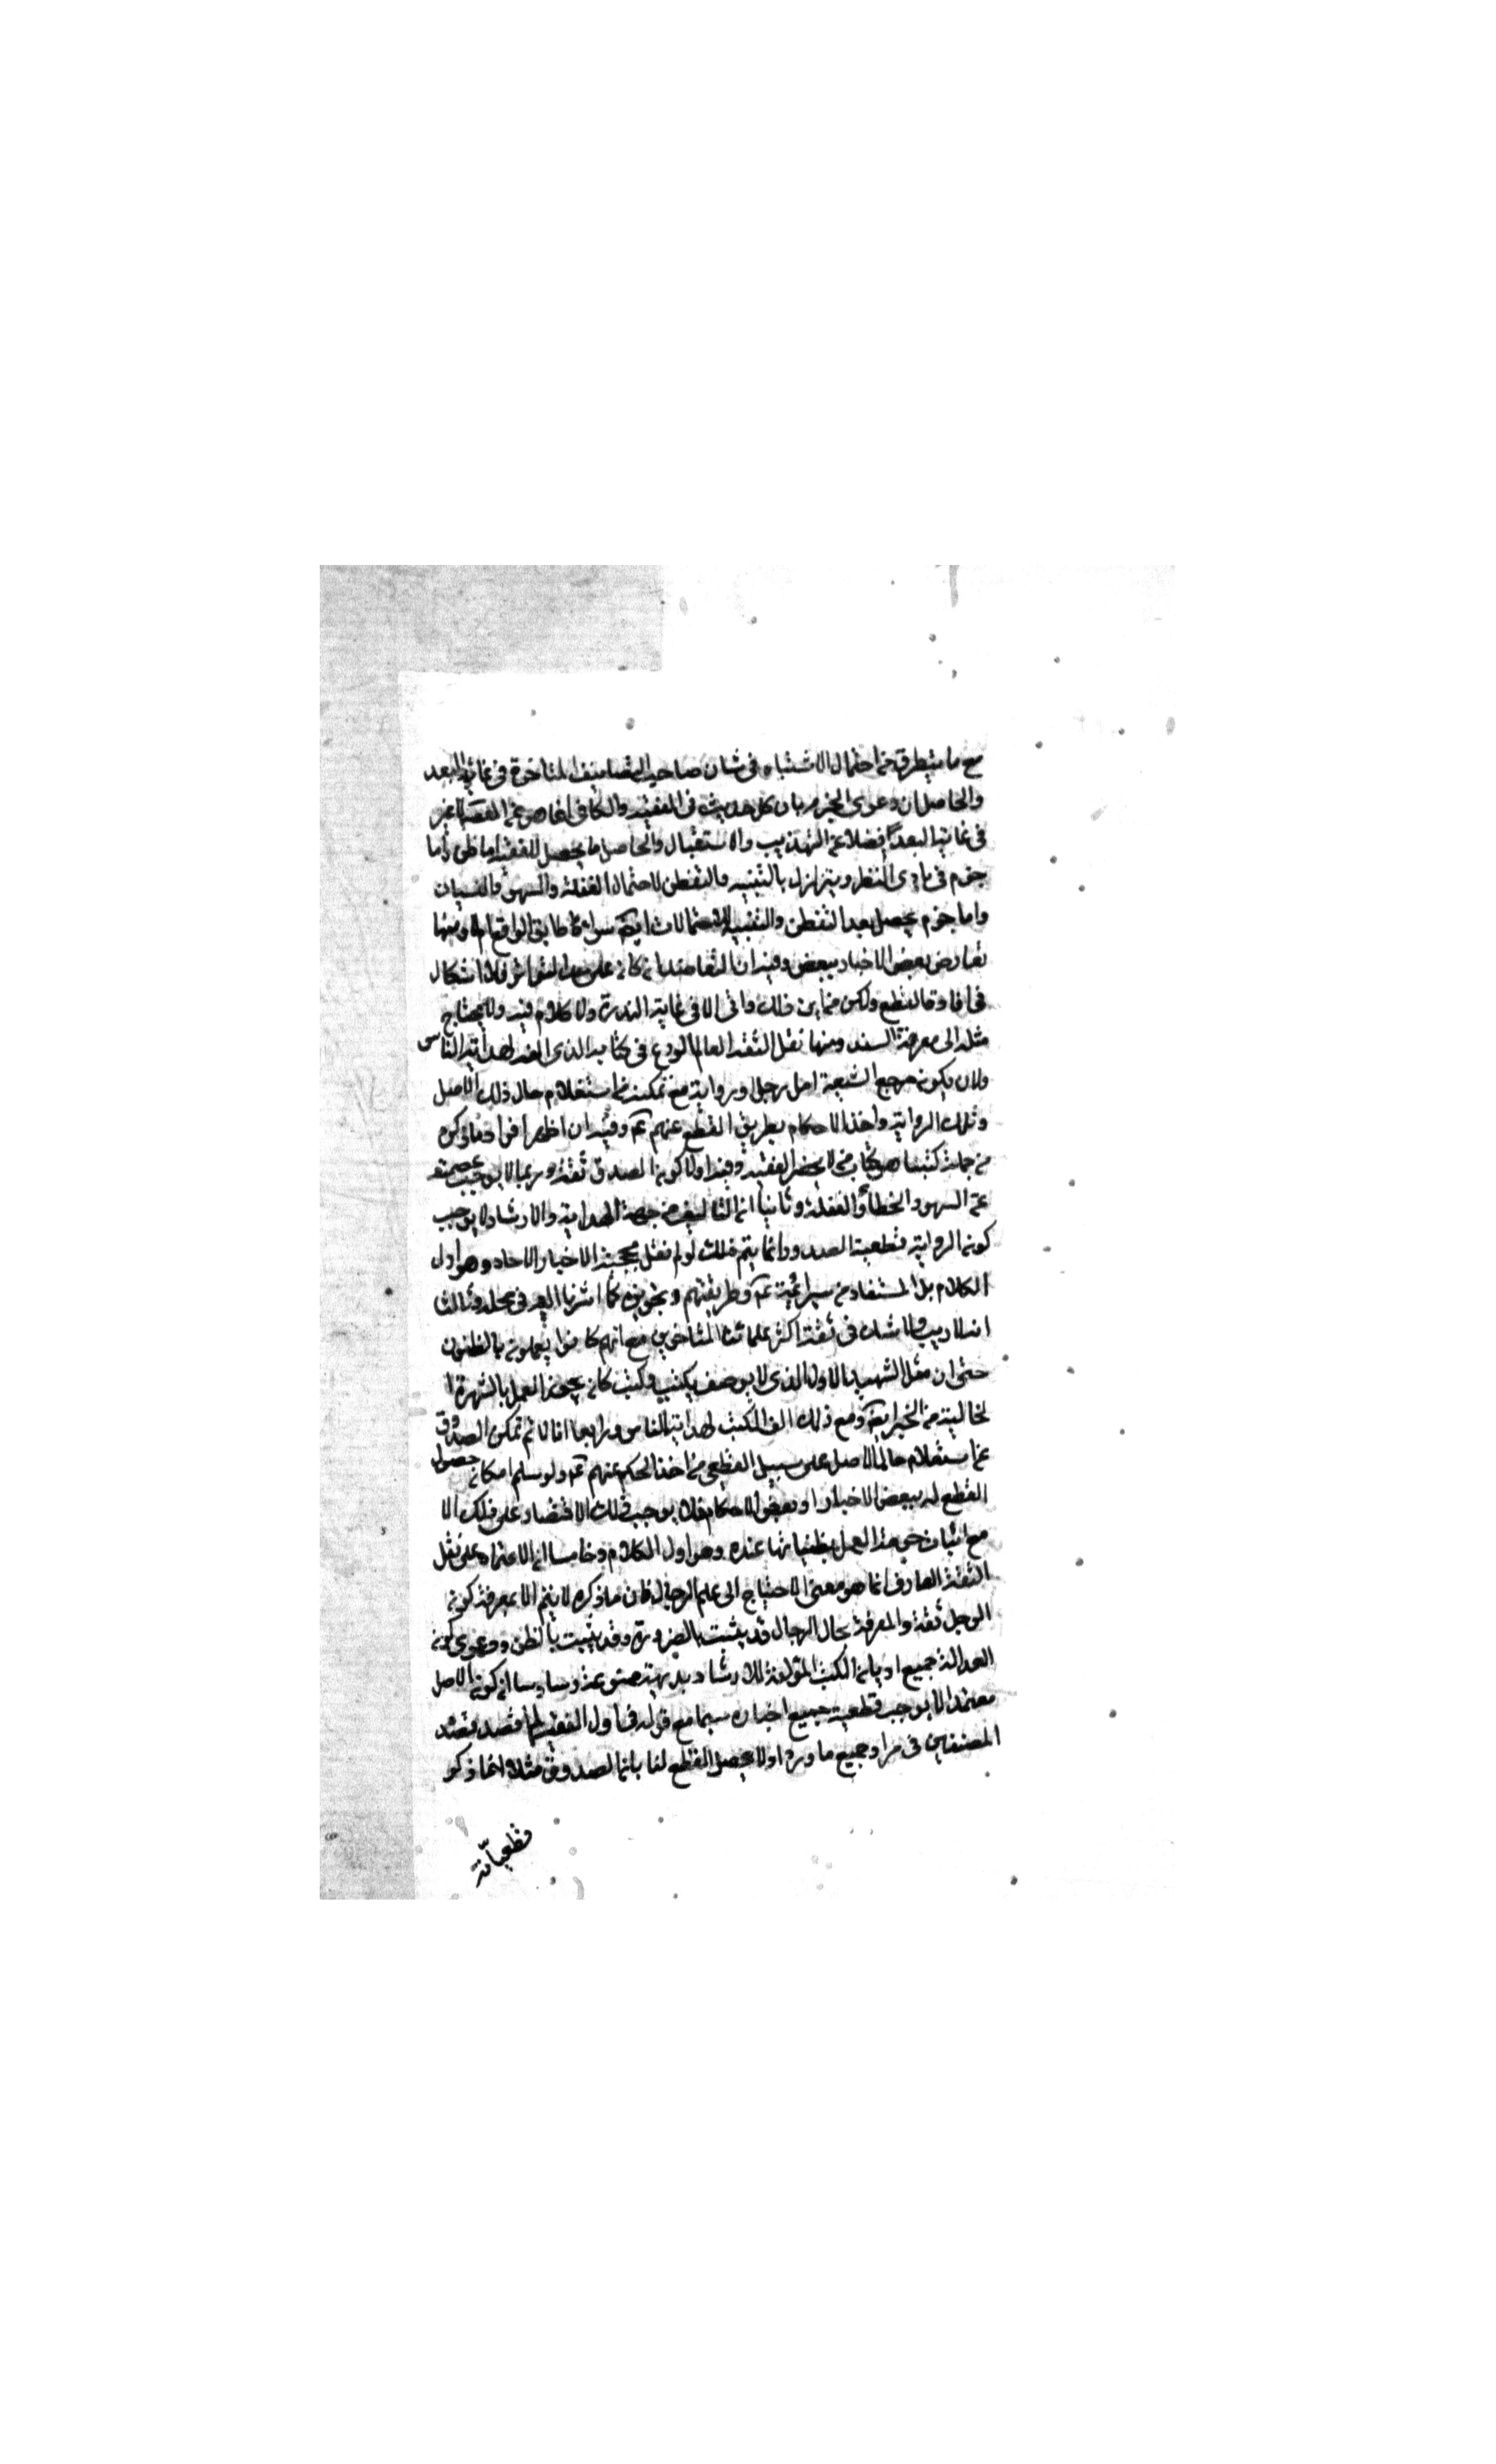 مع ما يتطرق من احتمال الاشتباه فى شان صاحب التصانيف المتاخرة فى غاية البعد
والحاصل ان دعوى الجزم بان كل حديث فى الفقيه والكافى انما هو عن المعصوم
فى غاية البعد فضلا عن التهذيب والاستبصار والحاصل ما يحصل للفقيه اما ظن واما
جزم فى بادى النظر ويتزلزل بالتنبيه والتفطن لاحتمال الغفلة والسهو والنسيان
واما جزم يحصل بعد التفطن والتنبيه للاحتمالات ايضا سواء طابق الواقع ام لا ومنها
تعارض بعض الاخبار ببعض وفيه ان التعاضد ان كان على حد التواتر فلا اشكال
فى افادته القطع ولكن من اين ذلك وانى الا فى غاية الندرة ولا كلام فيه ولا يحتاج
مثله الى معرفة السند ومنها نقل الثقة العالم الورع فى كتابه الذى الفه لهداية الناس
ولان يكون مرجع الشيعة اصل رجل او رواية مع تمكنه من استعلام حال ذلك الاصل
وتلك الرواية واخذ الاحكام بطريق القطع عنهم ع وفيه ان اظهر افراد ما ذكره
من جملة كتبنا هو كتاب من لا يحضر الفقيه وفيه اولا كون الصدوق ثقة وربما لا يوجب عصمته
عن السهو والخطأ والغفلة وثانيا ان التاليف من جهة الهداية والارشاد لا يوجب
كون الرواية قطعية الصدور وانما يتم ذلك لو لم نقل بحجية الاخبار الاحاد وهو اول
الكلام بل المستفاد من سير ائمته ع وطريقتهم وتجويزه كما اشرنا اليه فى محله وثالثا
انه لا ريب ولا شك فى ثقة اكثر علمائنا المتاخرين مع انهم كانوا يعملون بالظنون
حتى ان مثل الشهيد الاول الذى لا يوصف بكيف وكيف كان يجوز العمل بالشهرة ا
لخالية من الخبر ايضا ومع ذلك الف الكتب لهداية الناس ورابعا انا لا نم تمكن الصدوق
من استعلام حال الاصل على سبيل القطعى من اخذ الحكم عنهم ع ولو سلم امكان حصول
القطع له ببعض الاخبار او بعض الاحكام فلا يوجب ذلك الاقتصار على ذلك الا
مع اثبات حرمة العمل بظنياتها عنده وهو اول الكلام وخامسا ان الاعتماد على نقل
الثقة العارف انما هو معنى الاحتياج الى علم الرجال فان ما ذكره لا يتم الا بمعرفة كون
الرجل ثقة والمعرفة بحال الرجال قد يثبت بالضرورة وقد يثبت بالظن ودعوى كون
العدالة جميع ارباب الكتب المؤلفة للارشاد بديهية ممنوعة وسادسا ان كون الاصل
معتمدا لا يوجب قطعية جميع اخباره سيما مع قوله فى اول الفقيه لم اقصد قصد
المصنفين فى ايراد جميع ما رووا ولا يحصل القطع لنا بان الصدوق مثلا انما ذكر
قطعياته